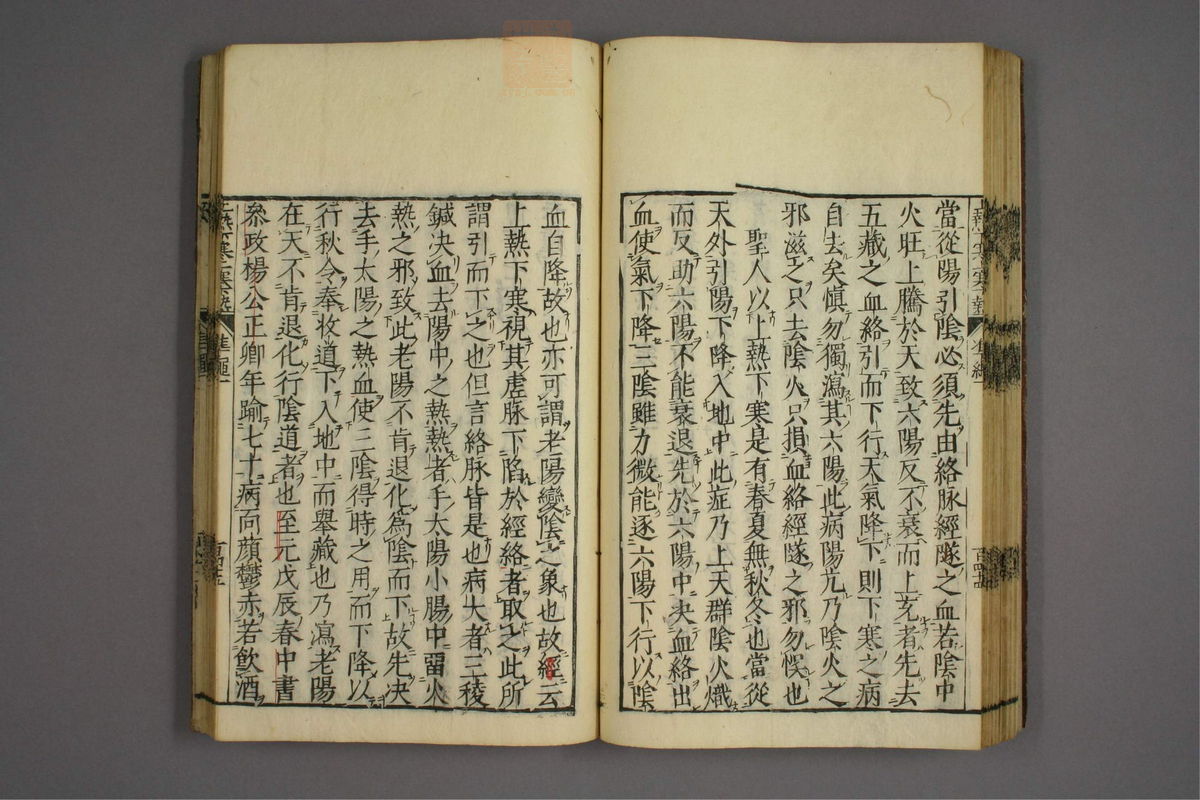 當從陽引陰必須先由絡脉經隧之血若陰中
火旺上騰於天致六陽反不衰而上亢者先去
五藏之血絡引而下行天氣降下則下寒之病
自去矣愼勿獨瀉其六陽此病陽亢乃陰火之
邪滋之只去陰火只損血絡經隧之邪勿悮也
聖人以上熱下寒是有春夏無秋冬也當從
天外引陽下降入地中此症乃上天群陰火熾
而反助六陽不能衰退先於六陽中决血絡出
血使氣下降三陰雖力微能逐六陽下行以陰
血自降故也亦可謂老陽變陰之象也故經云
上熱下寒視其虛脉下陷於經絡者取之此所
謂引而下之也但言絡脉皆是也病大者三稜
鍼决血去陽中之熱熱者手太陽小腸中留火
熱之邪致此老陽不肯退化爲陰而下故先决
去手太陽之熱血使三陰得時之用而下降以
行秋令奉收道下入地中而舉藏也乃瀉老陽
在天不肯退化行陰道者也至元戊辰春中書
叅政楊公正卿年踰七十病面顔鬱赤若飲酒